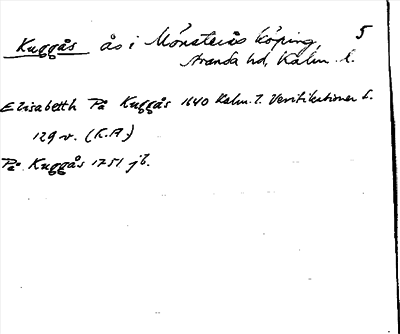 Kuggås ås i Mönsterås köping, 5
Stranda hd, Kalm. l.
Elisabetth På Kuggås 1640 Kalm. l. Verifikationer f.
129 v. (K.A.)
På Kuggås 1751 jb.